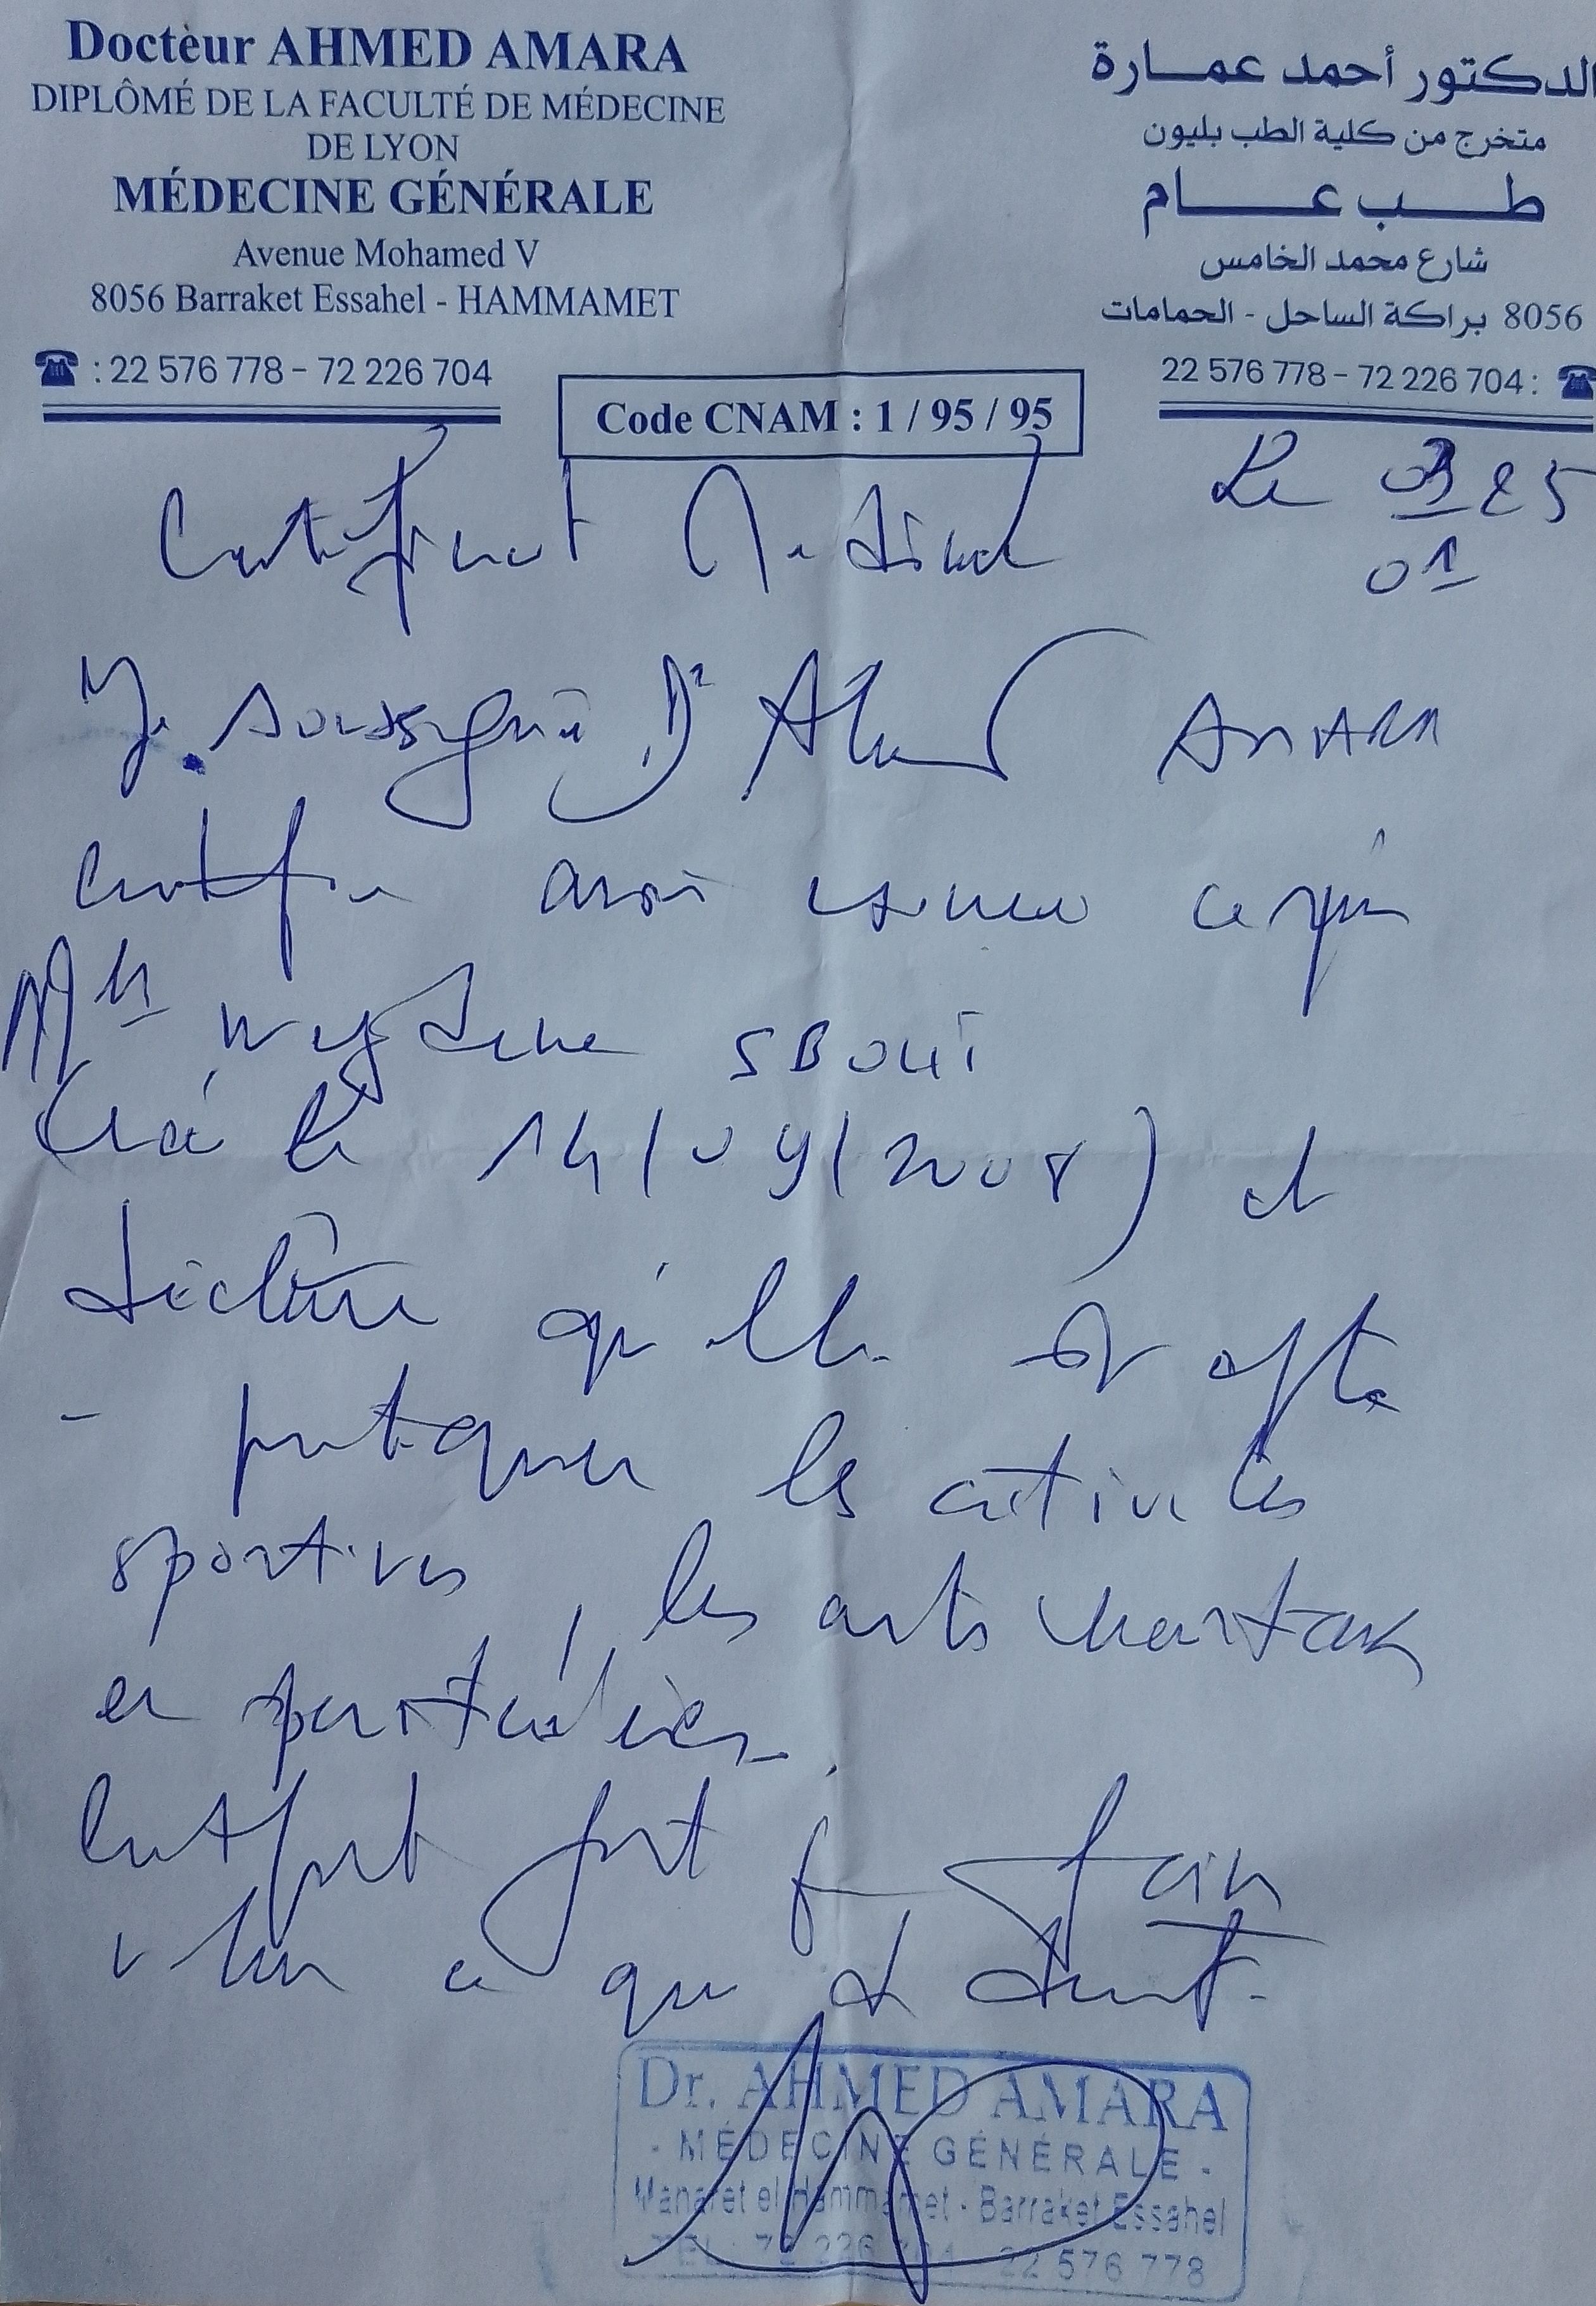 Docteur AHMED AMARA
DIPLÔMÉ DE LA FACULTÉ DE MÉDECINE
DE LYON
MÉDECINE GÉNÉRALE
Avenue Mohamed V
8056 Barraket Essahel - HAMMAMET
☎ : 22 576 778 - 72 226 704
الدكتور أحمد عمـــارة
متخرج من كلية الطب بليون
طـــب عـــام
شارع محمد الخامس
8056 براكة الساحل - الحمامات
22 576 778 - 72 226 704 : ☎
Code CNAM : 1 / 95 / 95
Le 25
01
Certificat Medical
Je soussigné Dr Ahmed AMARA
certifie avoir examiné ce jour
Mlle SBOUI
(née le 14/09/2008) et
déclare qu'elle est apte
à pratiquer les activités
sportives, les arts martiaux
en particulier.
Certificat fait pour faire
valoir ce que de droit.
Dr. AHMED AMARA
- MÉDECINE GÉNÉRALE -
Manaret el Hammamet - Barraket Essahel
TEL : 72 226 704 22 576 778